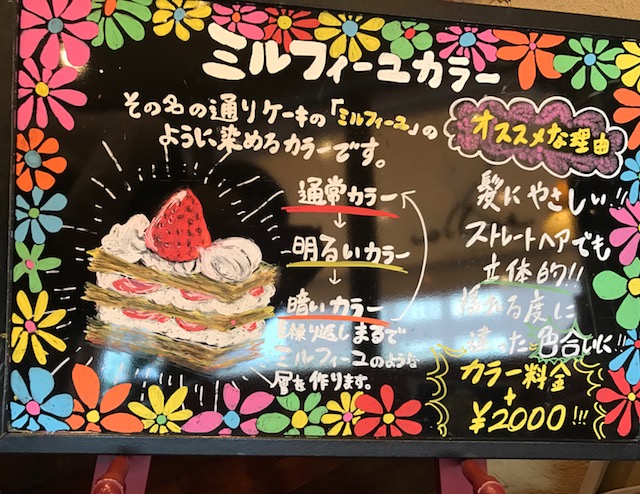 ミルフィーユカラー
その名の通りケーキの「ミルフィーユ」の
ように染めるカラーです。
通常カラー
↓
明るいカラー
↓
暗いカラー
を繰り返しまるで
ミルフィーユのような
層を作ります。
オススメな理由
髪にやさしい!!
ストレートヘアでも
立体的!!
揺れる度に
違った色合いに!!
カラー料金
+
¥2000!!!